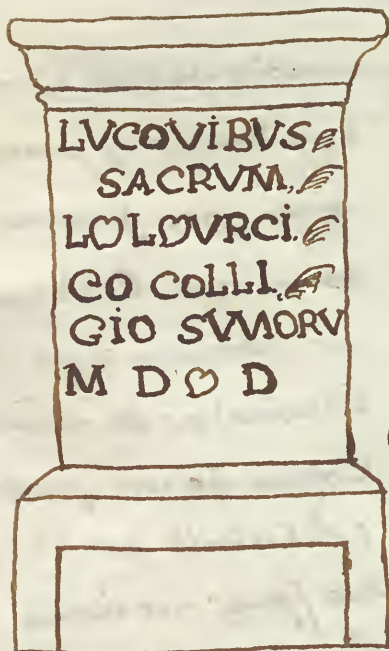 LVCOVIBVS
SACRVM.
L♡L♡VRCI.
CO COLLI.
GIO SVVIORV
M D ♡ D